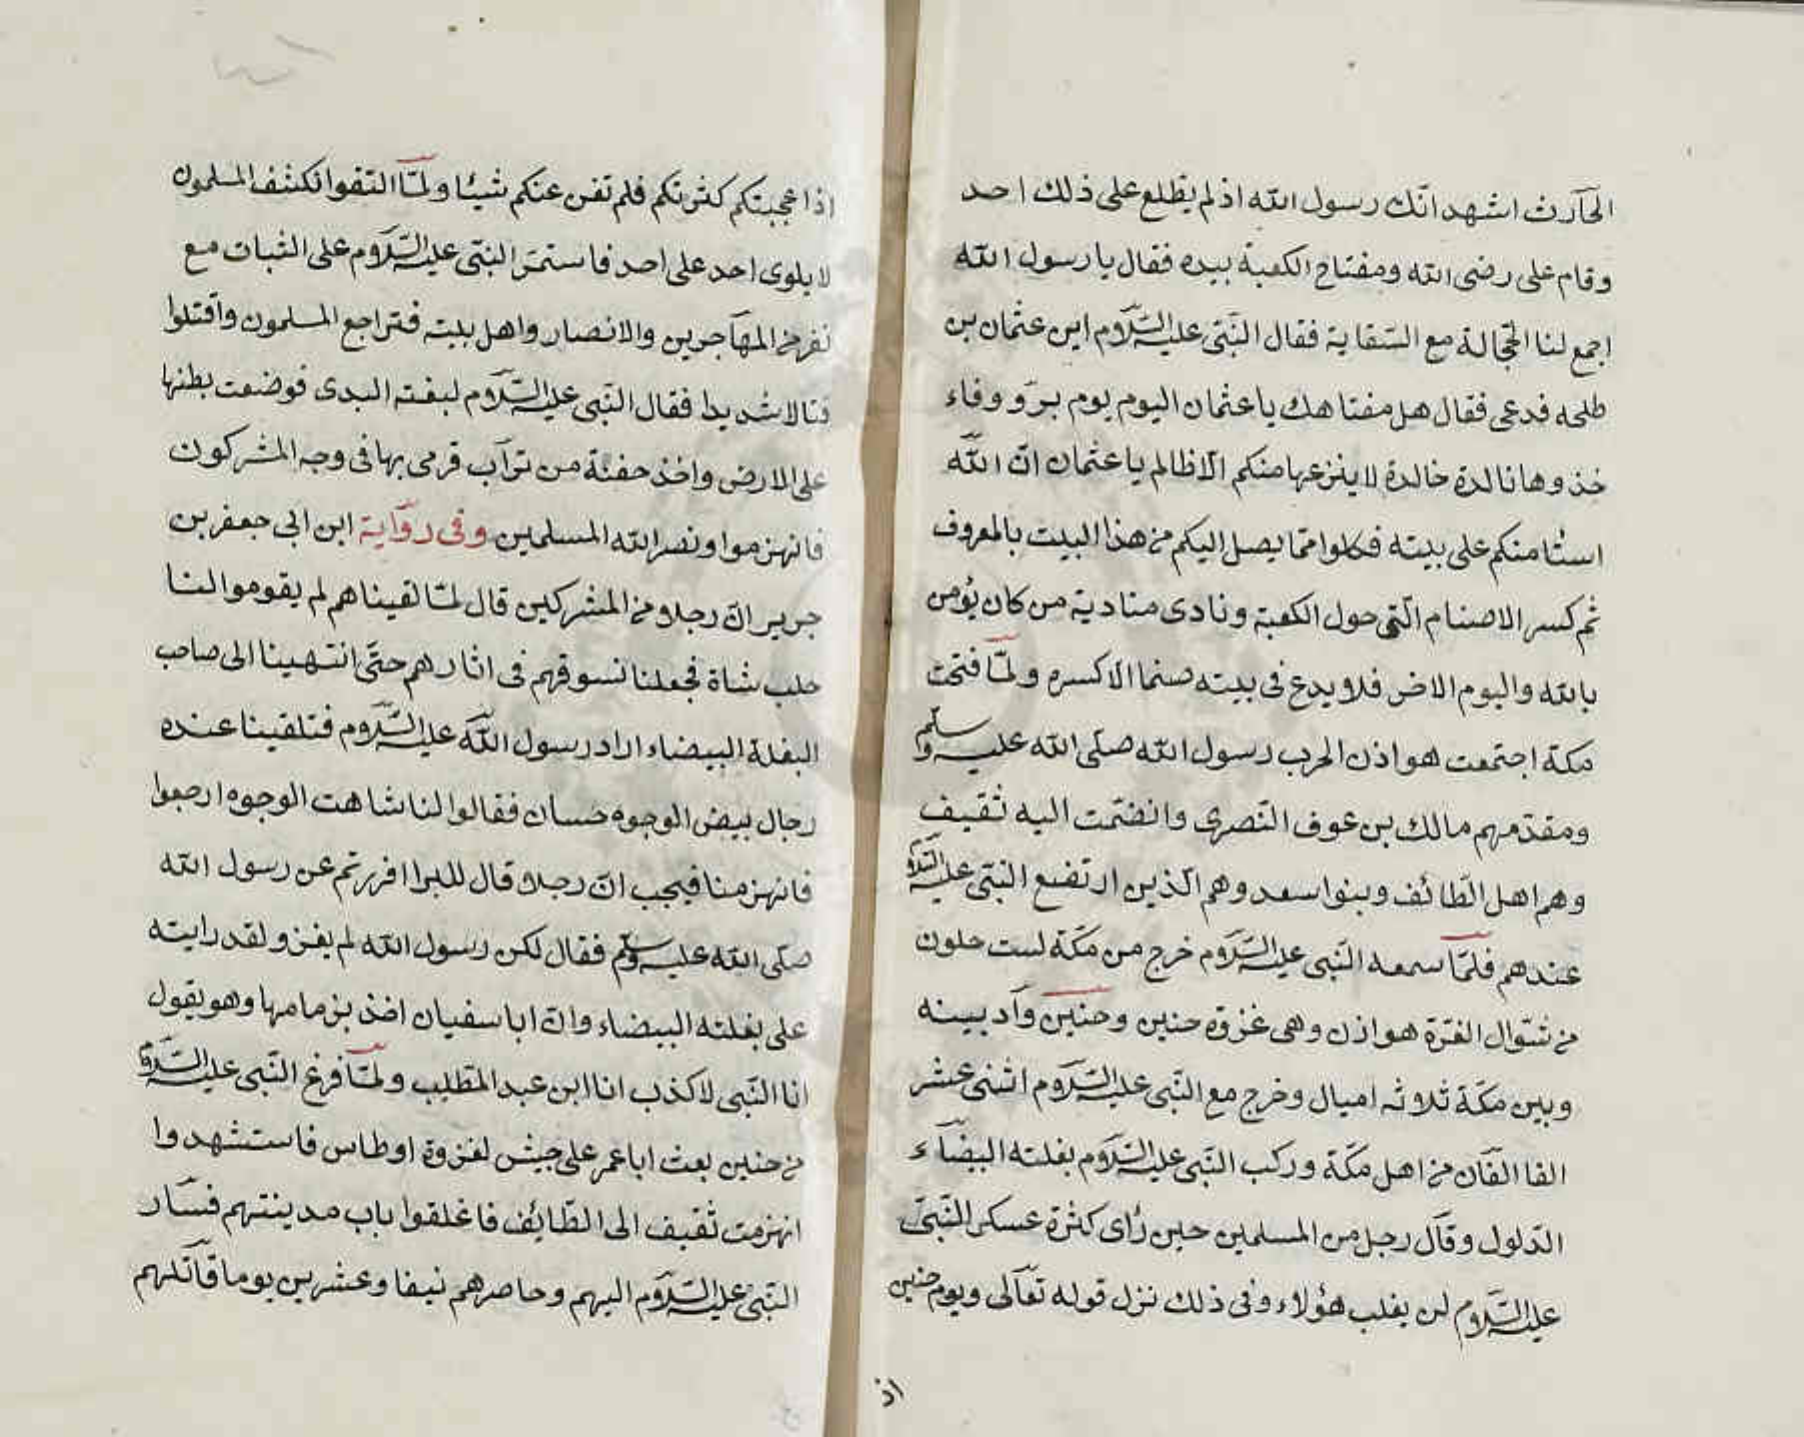 الحارث اشهد انّك رسول الله اذ لم يطلع على ذلك احد
وقام على رضى الله ومفتاح الكعبة بيده فقال يا رسول الله
اجمع لنا الحجالة مع السّقاية فقال النّبى عليه السّلاوم اين عثمان بن
طلحه فدعى فقال هل مفتاهك يا عثمان اليوم يوم برّ ووفاء
خذوها نالدة خالدة لا ينزعها منكم الّا ظالم يا عثمان انّ الله
استٔامنكم على بيته فكلوا ممّا يصل اليكم من هذا البيت بالمعروف
ثم كسر الاصنام الّتى حول الكعبة ونادى منادية من كان يؤمن
بالله واليوم الاخر فلا يدع فى بيته صنما الا كسره ولمّا فتحت
مكة اجتمعت هواذن لحرب رسول الله صلّى الله عليه وسلّم
ومقدّمهم مالك بن عوف النّصرى وانضمّت اليه ثقيف
وهم اهل الطّائف وبنوا سعد وهم الّذين ارتضع النبّى عليه السّلام
عندهم فلمّا سمعه النّبى عليه السّلام خرج من مكّة لست خلون
من شوّال الغزّة هواذن وهى غزوة حنين وحنين وآد بينه
وبين مكّة ثلاثه اميال وخرج مع النّبى عليه السّلام اثنى عشر
الفا الفان من اهل مكّة وركب النّبى عليه السّلام بغلته البيضآء
الدّلول وقال رجل من المسلمين حين رأى كثرة عسكر النّبىّ
عليه السّلام لن يغلب هؤلاء وفى ذلك نزل قوله تعالى ويوم حنين
اذ
اذا عجبتكم كثرتكم فلم تغن عنكم شيئا ولمّا التقوا انكشف المسلمون
لا يلوى احد على احد فاستمرّ النبّى عليه السّلام على الثبات مع
نفر من المهاجرين والانصار واهل بيته فتراجع المسلمون واقتتلوا
قتالا شديدا فقال النّبى عليه السّلام لبغته البدى فوضعت بطنها
على الارض واخذ حفنة من تراب فرمى بها فى وجه المشركون
فانهزموا ونصر الله المسلمين وفى رواية ابن ابى جعفر بن
جرير انّ رجلا من المشركين قال لمّا لقيناهم لم يقوموا لنا
حلب شاة فجعلنا نسوقهم فى اثارهم حتّى انتهينا الى صاحب
البغلة البيضاء اراد رسول الله عليه السّلام فتلقينا عنده
رجال بيض الوجوه حسان فقالوا لنا شاهت الوجوه ارجعوا
فانهزمنا فيجب انّ رجلا قال للبرا افررتم عن رسول الله
صلّى الله عليه وسلّم فقال لكن رسول الله لم يفز ولقد رايته
على بغلته البيضاء وانّ ابا سفيان اخذ بزمامها وهو يقول
انا النّبى لا كذب انا ابن عبد المطّلب ولمّا فرغ النّبى عليه السّلام
من حنين بعث ابا عمر على جيش لغزوة اوطاس فاستشهدوا
انهزمت ثقيف الى الطّايف فاغلقوا باب مدينتهم فسار
النّبىّ عليه السّلام اليهم وحاصرهم نيفا وعشرين يوما قاتلهم